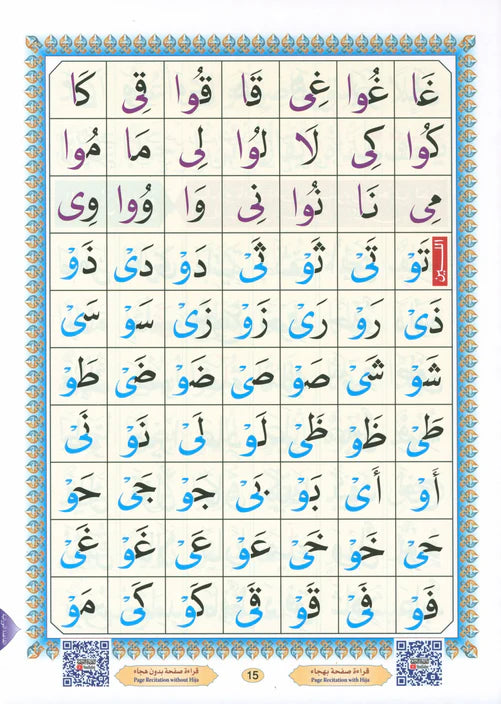 غَا غُوا غِى قَا قُوا قِى كَا
كُوا كِى لَا لُوا لِى مَا مُوا
مِى نَا نُوا نِى وَا وُوا وِى
اللــين تَوْ تَىْ ثَوْ ثَىْ دَوْ دَىْ ذَوْ
ذَىْ رَوْ رَىْ زَوْ زَىْ سَوْ سَىْ
شَوْ شَىْ صَوْ صَىْ ضَوْ ضَىْ طَوْ
طَىْ ظَوْ ظَىْ لَوْ لَىْ نَوْ نَىْ
أَوْ أَىْ بَوْ بَىْ جَوْ جَىْ حَوْ
حَىْ خَوْ خَىْ عَوْ عَىْ غَوْ غَىْ
فَوْ فَىْ قَوْ قَىْ كَوْ كَىْ مَوْ
قراءة صفحة بهجاء
Page Recitation with Hija
15
قراءة صفحة بدون هجاء
Page Recitation without Hija